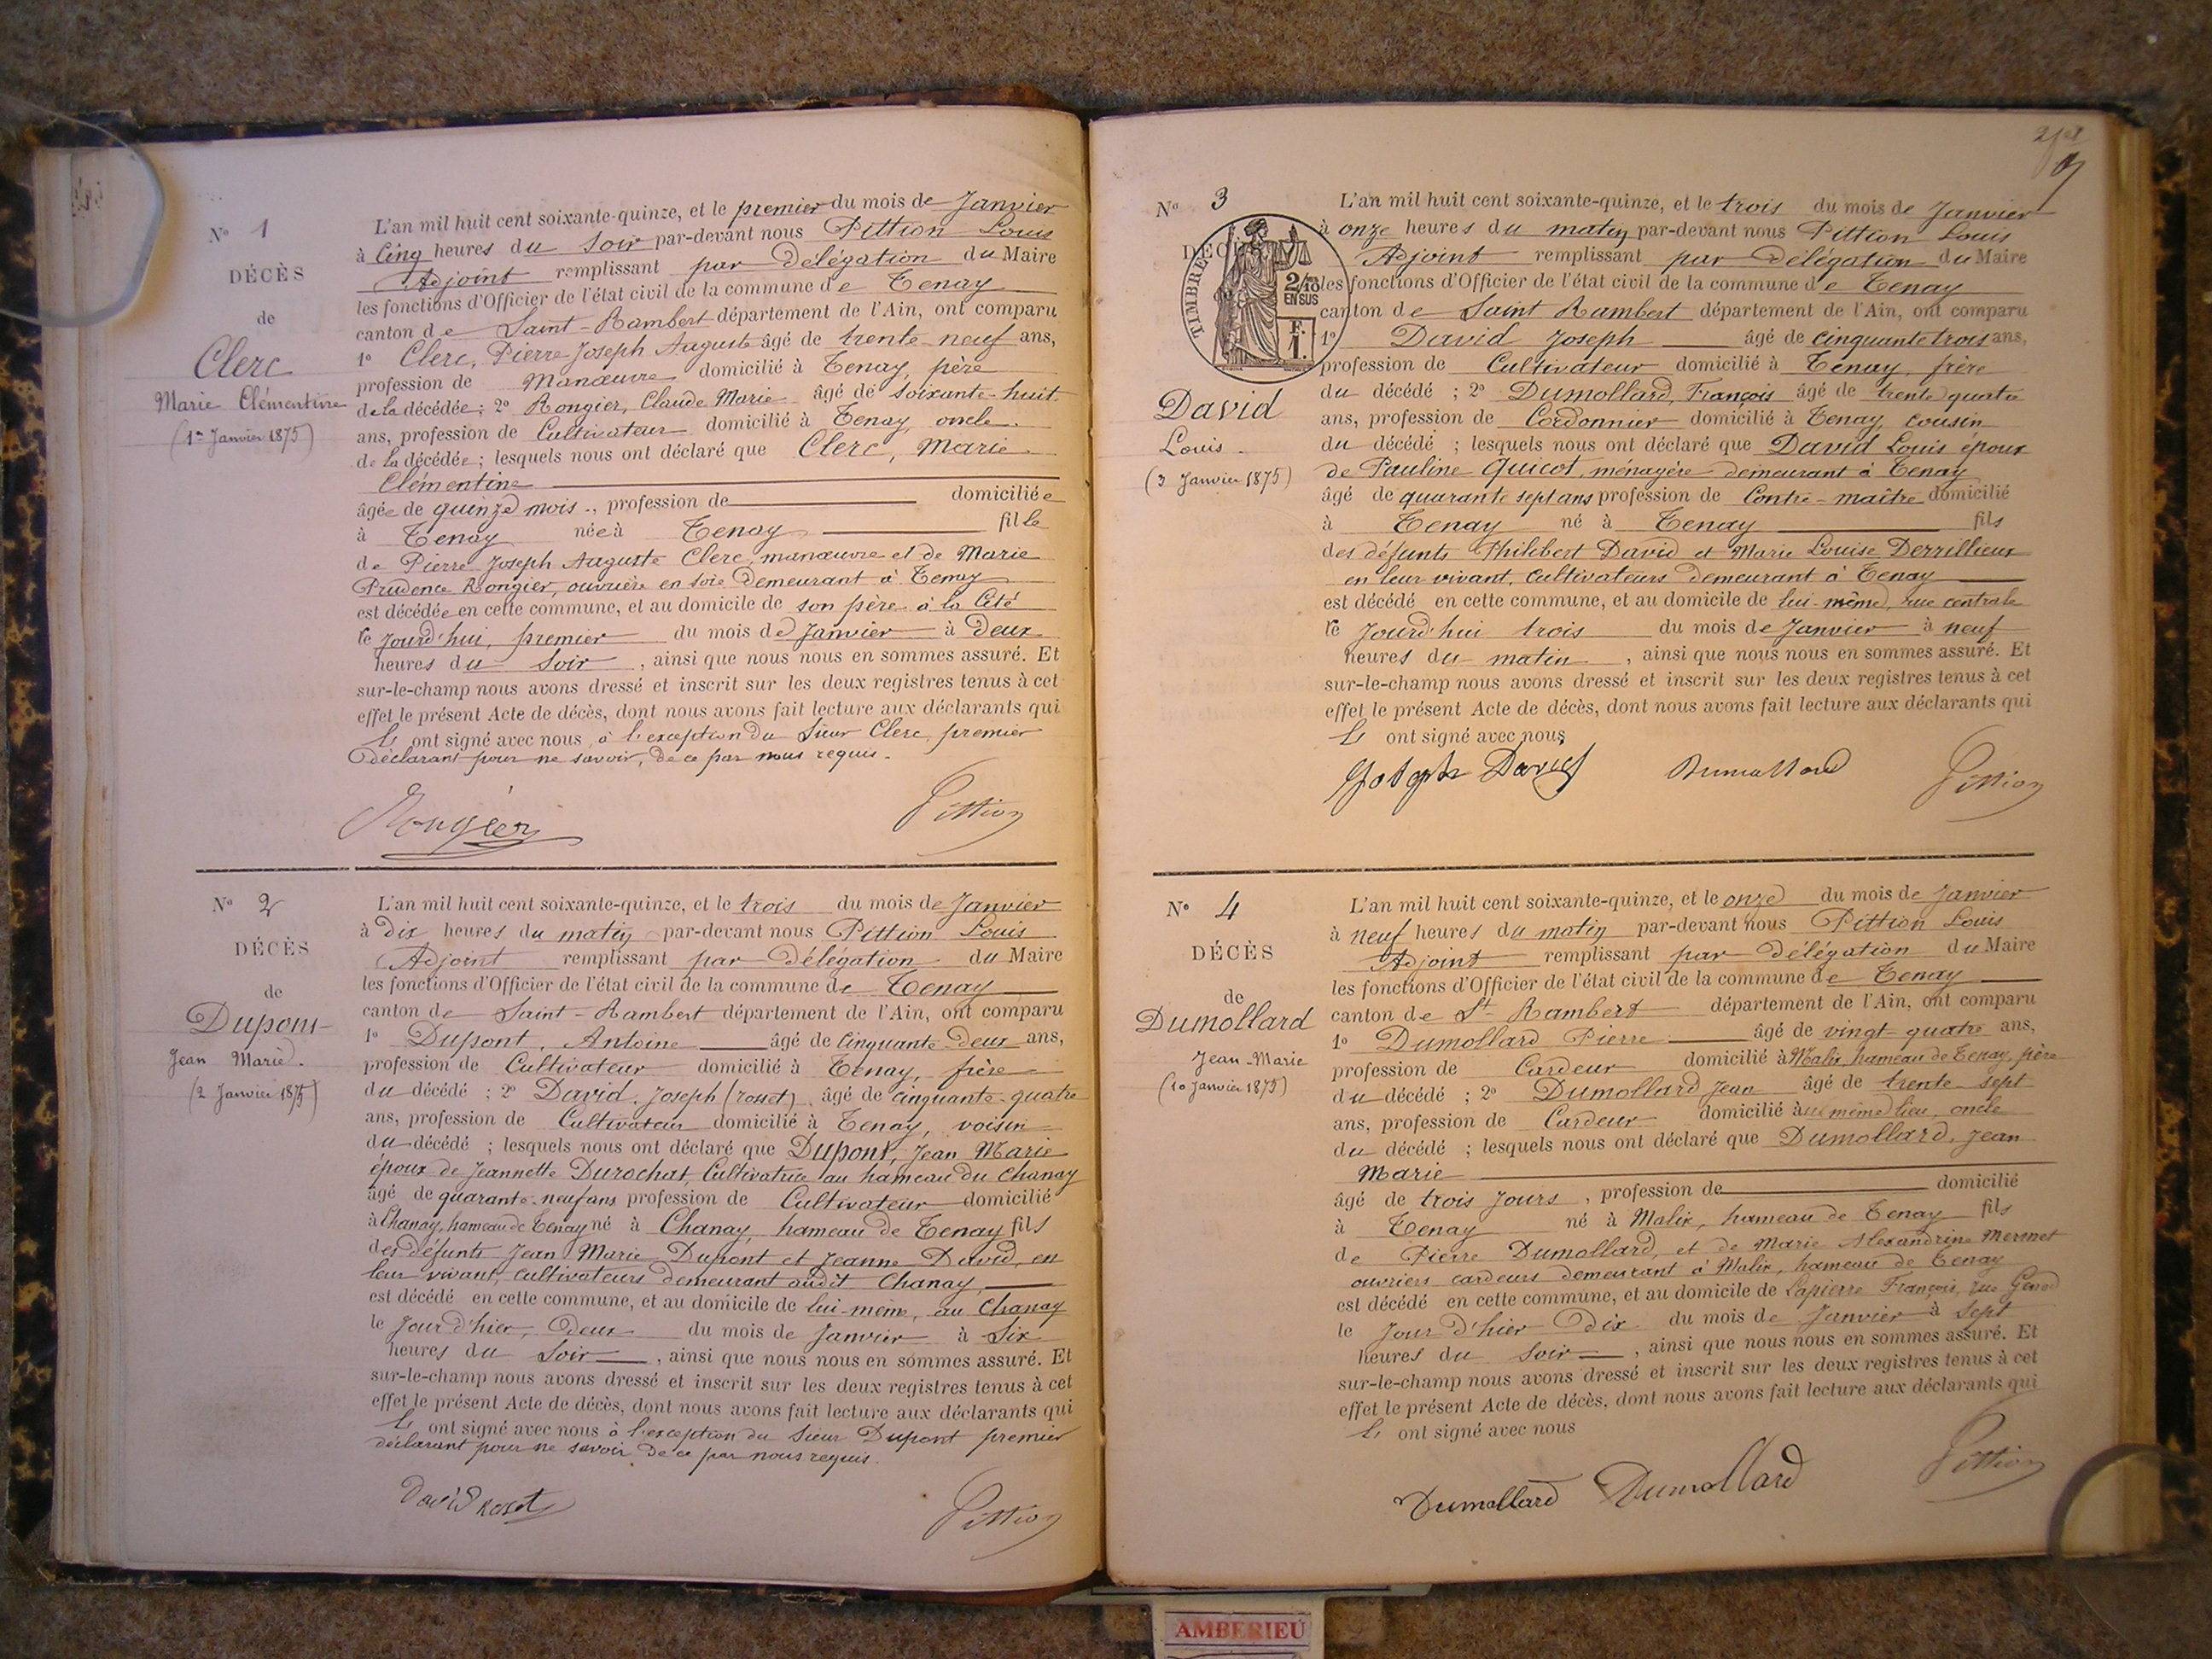 N° 1
DÉCÈS
de
Clerc
Marie Clémentine
(1er Janvier 1875)
L'an mil huit cent soixante-quinze, et le premier du mois de Janvier
à Cinq heures du Soir par-devant nous Pittion Louis
Adjoint remplissant par Délégation du Maire
les fonctions d'Officier de l'état civil de la commune de Tenay
canton de Saint-Rambert département de l'Ain, ont comparu
1° Clerc, Pierre Joseph Auguste âgé de trente-neuf ans,
profession de Manœuvre domicilié à Tenay, père
de la décédée; 2° Rongier, Claude Marie âgé de soixante-huit
ans, profession de Cultivateur domicilié à Tenay, oncle
de la décédée; lesquels nous ont déclaré que Clerc, Marie
Clémentine
âgée de quinze mois, profession de domiciliée
à Tenay née à Tenay fille
de Pierre Joseph Auguste Clerc, manœuvre et de Marie
Prudence Rongier, ouvrière en soie demeurant à Tenay
est décédée en cette commune, et au domicile de son père à la Cité
le jourd'hui, premier du mois de Janvier à Deux
heures du Soir, ainsi que nous nous en sommes assuré. Et
sur-le-champ nous avons dressé et inscrit sur les deux registres tenus à cet
effet le présent Acte de décès, dont nous avons fait lecture aux déclarants qui
ont signé avec nous, à l'exception du Sieur Clerc, premier
déclarant pour ne savoir, de ce par nous requis.
Rongier Pittion
N° 2
DÉCÈS
de
Dupont
Jean Marie.
(2 Janvier 1875)
L'an mil huit cent soixante-quinze, et le trois du mois de Janvier
à Dix heures du matin par-devant nous Pittion Louis
Adjoint remplissant par Délégation du Maire
les fonctions d'Officier de l'état civil de la commune de Tenay
canton de Saint-Rambert département de l'Ain, ont comparu
1° Dupont, Antoine âgé de Cinquante-Deux ans,
profession de Cultivateur domicilié à Tenay, frère
du décédé; 2° David, Joseph (rosset), âgé de cinquante-quatre
ans, profession de Cultivateur domicilié à Tenay, voisin
du décédé; lesquels nous ont déclaré que Dupont, Jean Marie
époux de Jeannette Durochat, Cultivatrice au hameau du Chanay
âgé de quarante-neuf ans profession de Cultivateur domicilié
à Chanay, hameau de Tenay né à Chanay, hameau de Tenay fils
des défunts Jean Marie Dupont et Jeanne David, en
leur vivant, cultivateurs demeurant audit Chanay,
est décédé en cette commune, et au domicile de lui-même, au Chanay
le jour d'hier, Deux du mois de Janvier à Six
heures du Soir, ainsi que nous nous en sommes assuré. Et
sur-le-champ nous avons dressé et inscrit sur les deux registres tenus à cet
effet le présent Acte de décès, dont nous avons fait lecture aux déclarants qui
ont signé avec nous à l'exception du Sieur Dupont premier
déclarant pour ne savoir de ce par nous requis.
David Rosset Pittion
N° 3
DÉC
TIMBRE
2/10
EN SUS
F.
1.
David
Louis.
(3 Janvier 1875)
L'an mil huit cent soixante-quinze, et le trois du mois de Janvier
à onze heures du matin par-devant nous Pittion Louis
Adjoint remplissant par Délégation du Maire
les fonctions d'Officier de l'état civil de la commune de Tenay
canton de Saint Rambert département de l'Ain, ont comparu
1° David Joseph âgé de cinquante trois ans,
profession de Cultivateur domicilié à Tenay, frère
du décédé; 2° Dumollard, François âgé de trente quatre
ans, profession de Cordonnier domicilié à Tenay, cousin
du décédé; lesquels nous ont déclaré que David Louis époux
de Pauline Quicot, ménagère demeurant à Tenay
âgé de quarante sept ans profession de Contre-maître domicilié
à Tenay né à Tenay fils
des défunts Philibert David et Marie Louise Derrillieux
en leur vivant, cultivateurs demeurant à Tenay
est décédé en cette commune, et au domicile de lui-même, rue centrale
le jourd'hui trois du mois de Janvier à neuf
heures du matin, ainsi que nous nous en sommes assuré. Et
sur-le-champ nous avons dressé et inscrit sur les deux registres tenus à cet
effet le présent Acte de décès, dont nous avons fait lecture aux déclarants qui
ont signé avec nous
Joseph David Dumollard Pittion
N° 4
DÉCÈS
de
Dumollard
Jean-Marie
(10 Janvier 1875)
L'an mil huit cent soixante-quinze, et le onze du mois de Janvier
à neuf heures du matin par-devant nous Pittion Louis
Adjoint remplissant par délégation du Maire
les fonctions d'Officier de l'état civil de la commune de Tenay
canton de St-Rambert département de l'Ain, ont comparu
1° Dumollard Pierre âgé de vingt-quatre ans,
profession de Cardeur domicilié à Malix, hameau de Tenay, père
du décédé; 2° Dumollard Jean âgé de trente-sept
ans, profession de Cardeur domicilié au même lieu, oncle
du décédé; lesquels nous ont déclaré que Dumollard, Jean
Marie
âgé de trois jours, profession de domicilié
à Tenay né à Malix, hameau de Tenay fils
de Pierre Dumollard, et de Marie Alexandrine Mermet
ouvriers cardeurs demeurant à Malix, hameau de Tenay
est décédé en cette commune, et au domicile de Lapierre François, rue
le jour d'hier Dix du mois de Janvier à Sept
heures du Soir, ainsi que nous nous en sommes assuré. Et
sur-le-champ nous avons dressé et inscrit sur les deux registres tenus à cet
effet le présent Acte de décès, dont nous avons fait lecture aux déclarants qui
ont signé avec nous
Dumollard Dumollard Pittion
AMBERIEU